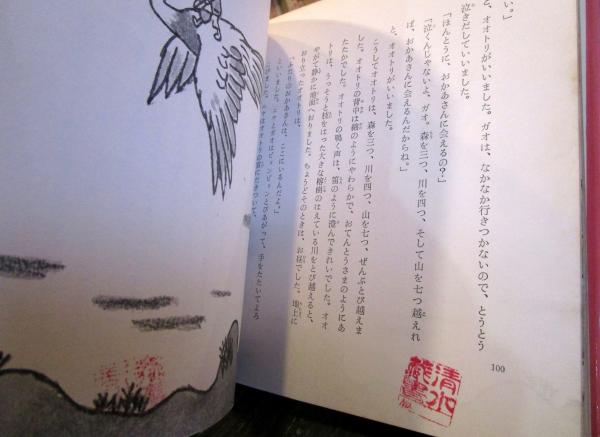 い。」
と、オオトリがいいました。ガオは、なかなか行きつかないので、とうとう
泣きだしていいました。
「ほんとうに、おかあさんに会えるの?」
「泣くんじゃないよ、ガオ。森を三つ、川を四つ、そして山を七つ越えれ
ば、おかあさんに会えるんだからね。」
と、オオトリがいいました。
こうしてオオトリは、森を三つ、川を四つ、山を七つ、ぜんぶとび越えま
した。オオトリの背中は綿のようにやわらかで、おてんとうさまのようにあ
たたかでした。オオトリの鳴く声は、笛のように澄んできれいでした。オオ
トリは、うっそうと枝をはった大きな榕樹のはえている川をとび越えると、
やがて静かに地面へおりました。ちょうどそのときは、お昼でした。地上に
おり立ったオオトリは、
「ふたりのおかあさんは、ここにいるんだよ。」
といいました。ニケとガオはピョンピョンとびあがって、手をたたいてよろ
こびました。ニケはオオトリの首にだきついて、
100
清水
蔵書